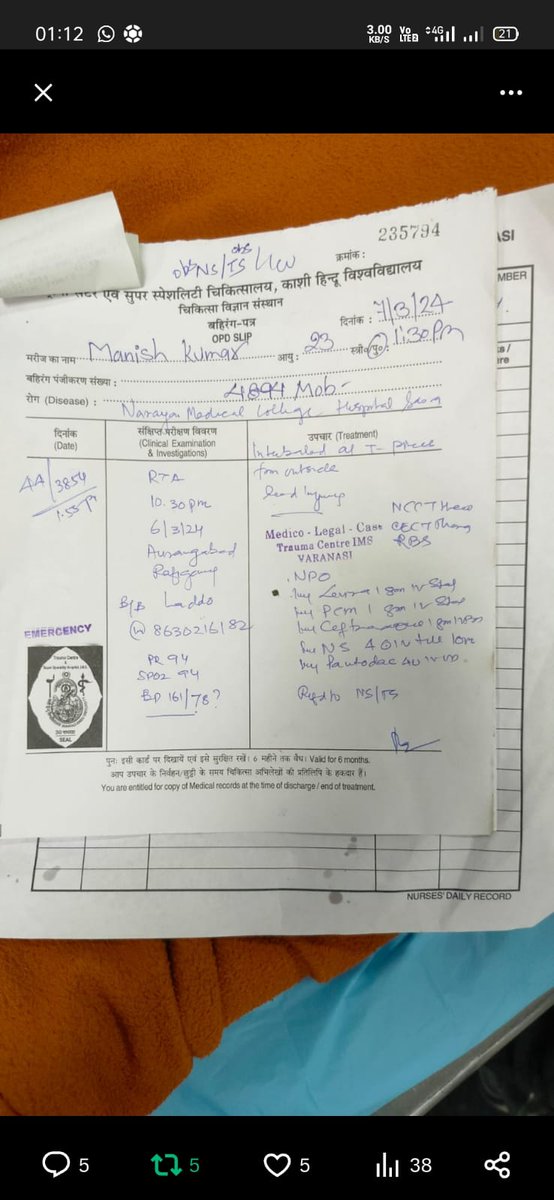 01:12
3.00 KB/S VoLTE2 4G 21
235794
ASI
obs
obs NS/TS/
क्रमांक :
एवं सुपर स्पेशलिटी चिकित्सालय, काशी हिन्दू विश्वविद्यालय
चिकित्सा विज्ञान संस्थान
बहिरंग-पत्र
OPD SLIP
दिनांक : 7/3/24
1:30 pm
मरीज का नाम Manish Kumar आयु : 23 स्त्री/पु० :
बहिरंग पंजीकरण संख्या : 4894 Mob-
रोग (Disease) : Narayan Medical College Hospital
दिनांक
(Date)
संक्षिप्त-परीक्षण विवरण
(Clinical Examination
& Investigations)
उपचार (Treatment)
Intubated at T-Piece
from outside
Head Injury
AA/3854
1:55 pm
RTA
10.30 pm
6/3/24
Aurangabad
Rafiganj
B/B Laddo
8630216182
PR 94
SPO2 94
BP 161/78?
NCCT Head
CECT
RBS
Medico - Legal - Case
Trauma Centre IMS
VARANASI
NPO
Inj 1 gm IV Stat
Inj PCM 1 gm IV Stat
Inj 1 gm IV
NS
Inj Pantodac 40 IV
Ref to NS/TS
EMERGENCY
SEAL
पुनः इसी कार्ड पर दिखायें एवं इसे सुरक्षित रखें। 6 महीने तक वैध। Valid for 6 months.
आप उपचार के निर्वहन/छुट्टी के समय चिकित्सा अभिलेखों की प्रतिलिपि के हकदार हैं।
You are entitled for copy of Medical records at the time of discharge / end of treatment.
NURSES' DAILY RECORD
5 5 5 38